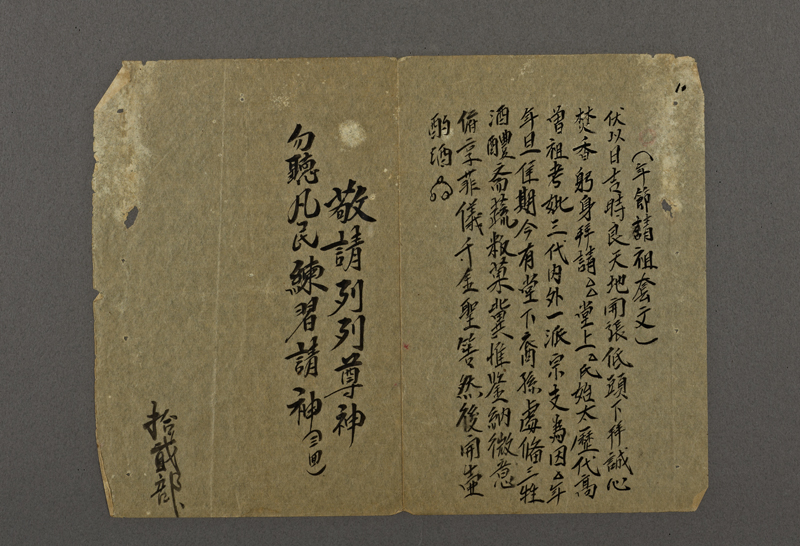 10
(年節請祖套文)
伏以日吉時良天地開張低頭下拜誠心
焚香躬身拜請△△堂上△氏姓太歷代高
曾祖考妣三代內外一派宗支為因△年
年旦佳期今有堂下裔孫虔備三牲
酒醴斋蔬粄菓冀惟鉴納微意
俻享菲儀千金聖筶然後開壷
酌酒
敬請列列尊神
勿聽凡民練習請神(三回)
拾貳部